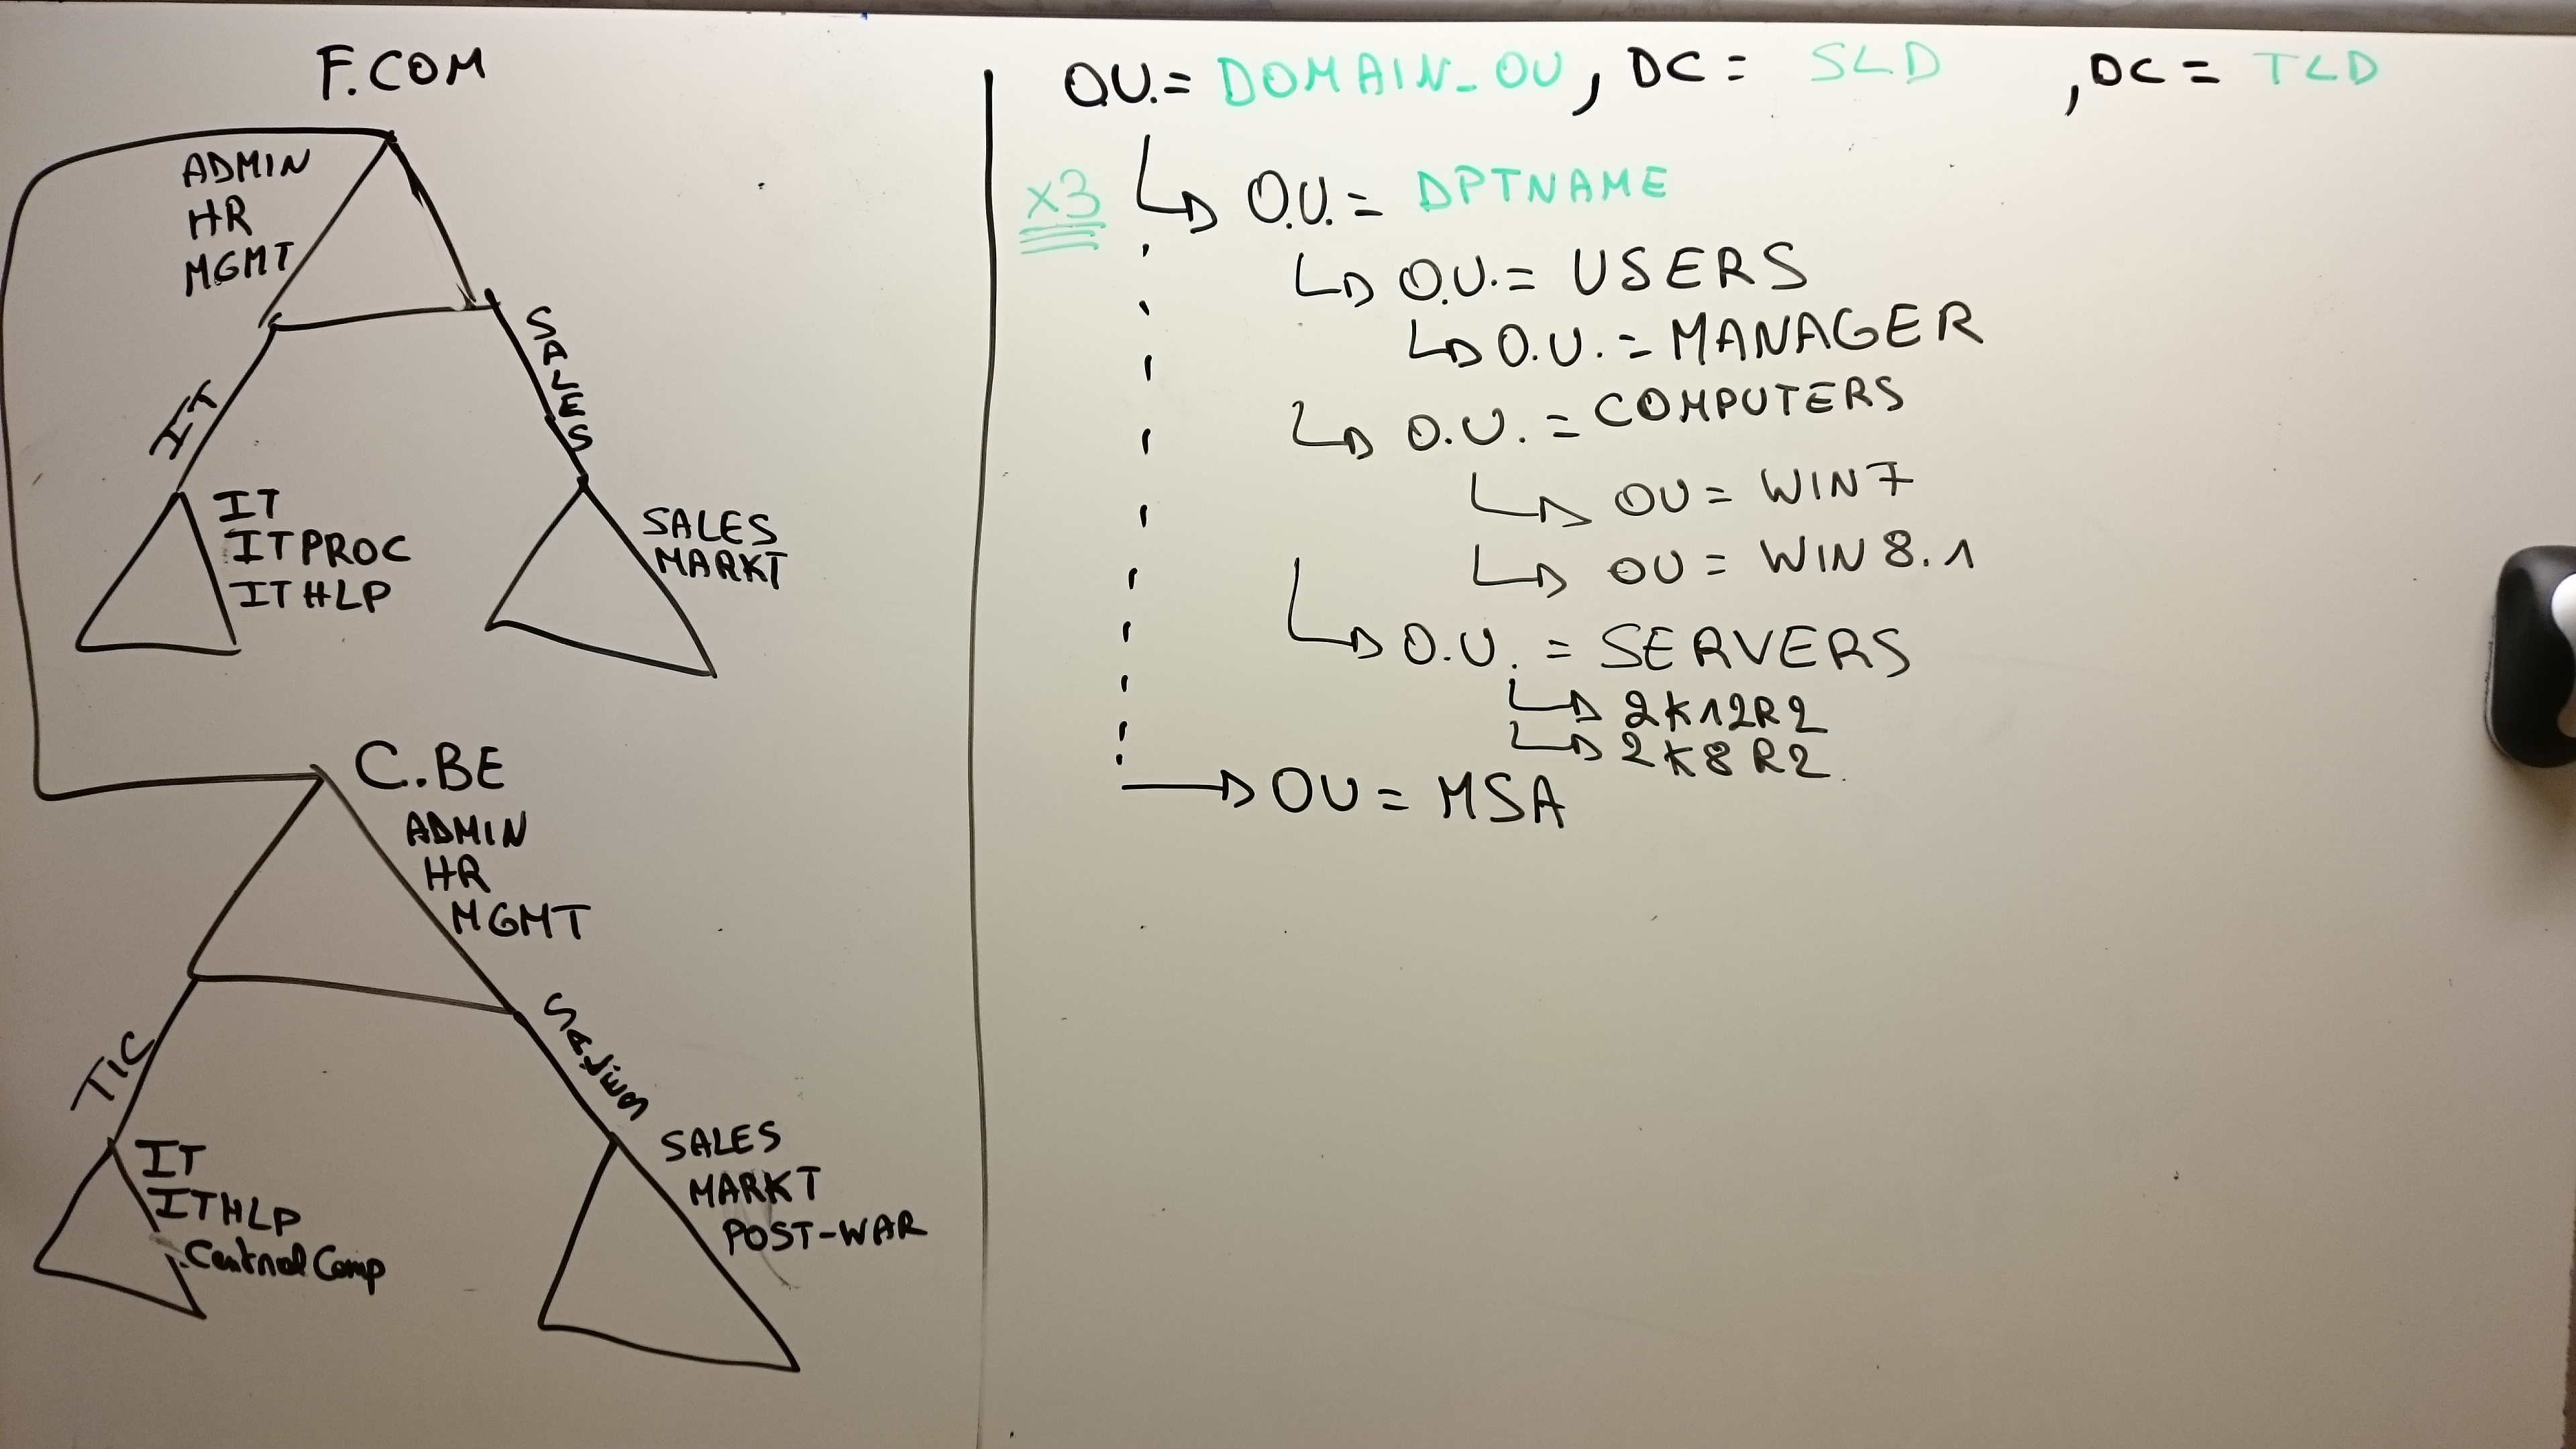 F.COM
ADMIN
HR
MGMT
IT
SALES
IT
ITPROC
ITHLP
SALES
MARKT
C.BE
ADMIN
HR
MGMT
TIC
IT
ITHLP
Central Comp
SALES
MARKT
POST-WAR
O.U.= DOMAIN_OU, DC = SLD , DC = TLD
x3 O.U. = DPTNAME
O.U. = USERS
O.U. = MANAGER
O.U. = COMPUTERS
OU = WIN7
OU = WIN 8.1
O.U. = SERVERS
2K12R2
2K8R2
OU = MSA